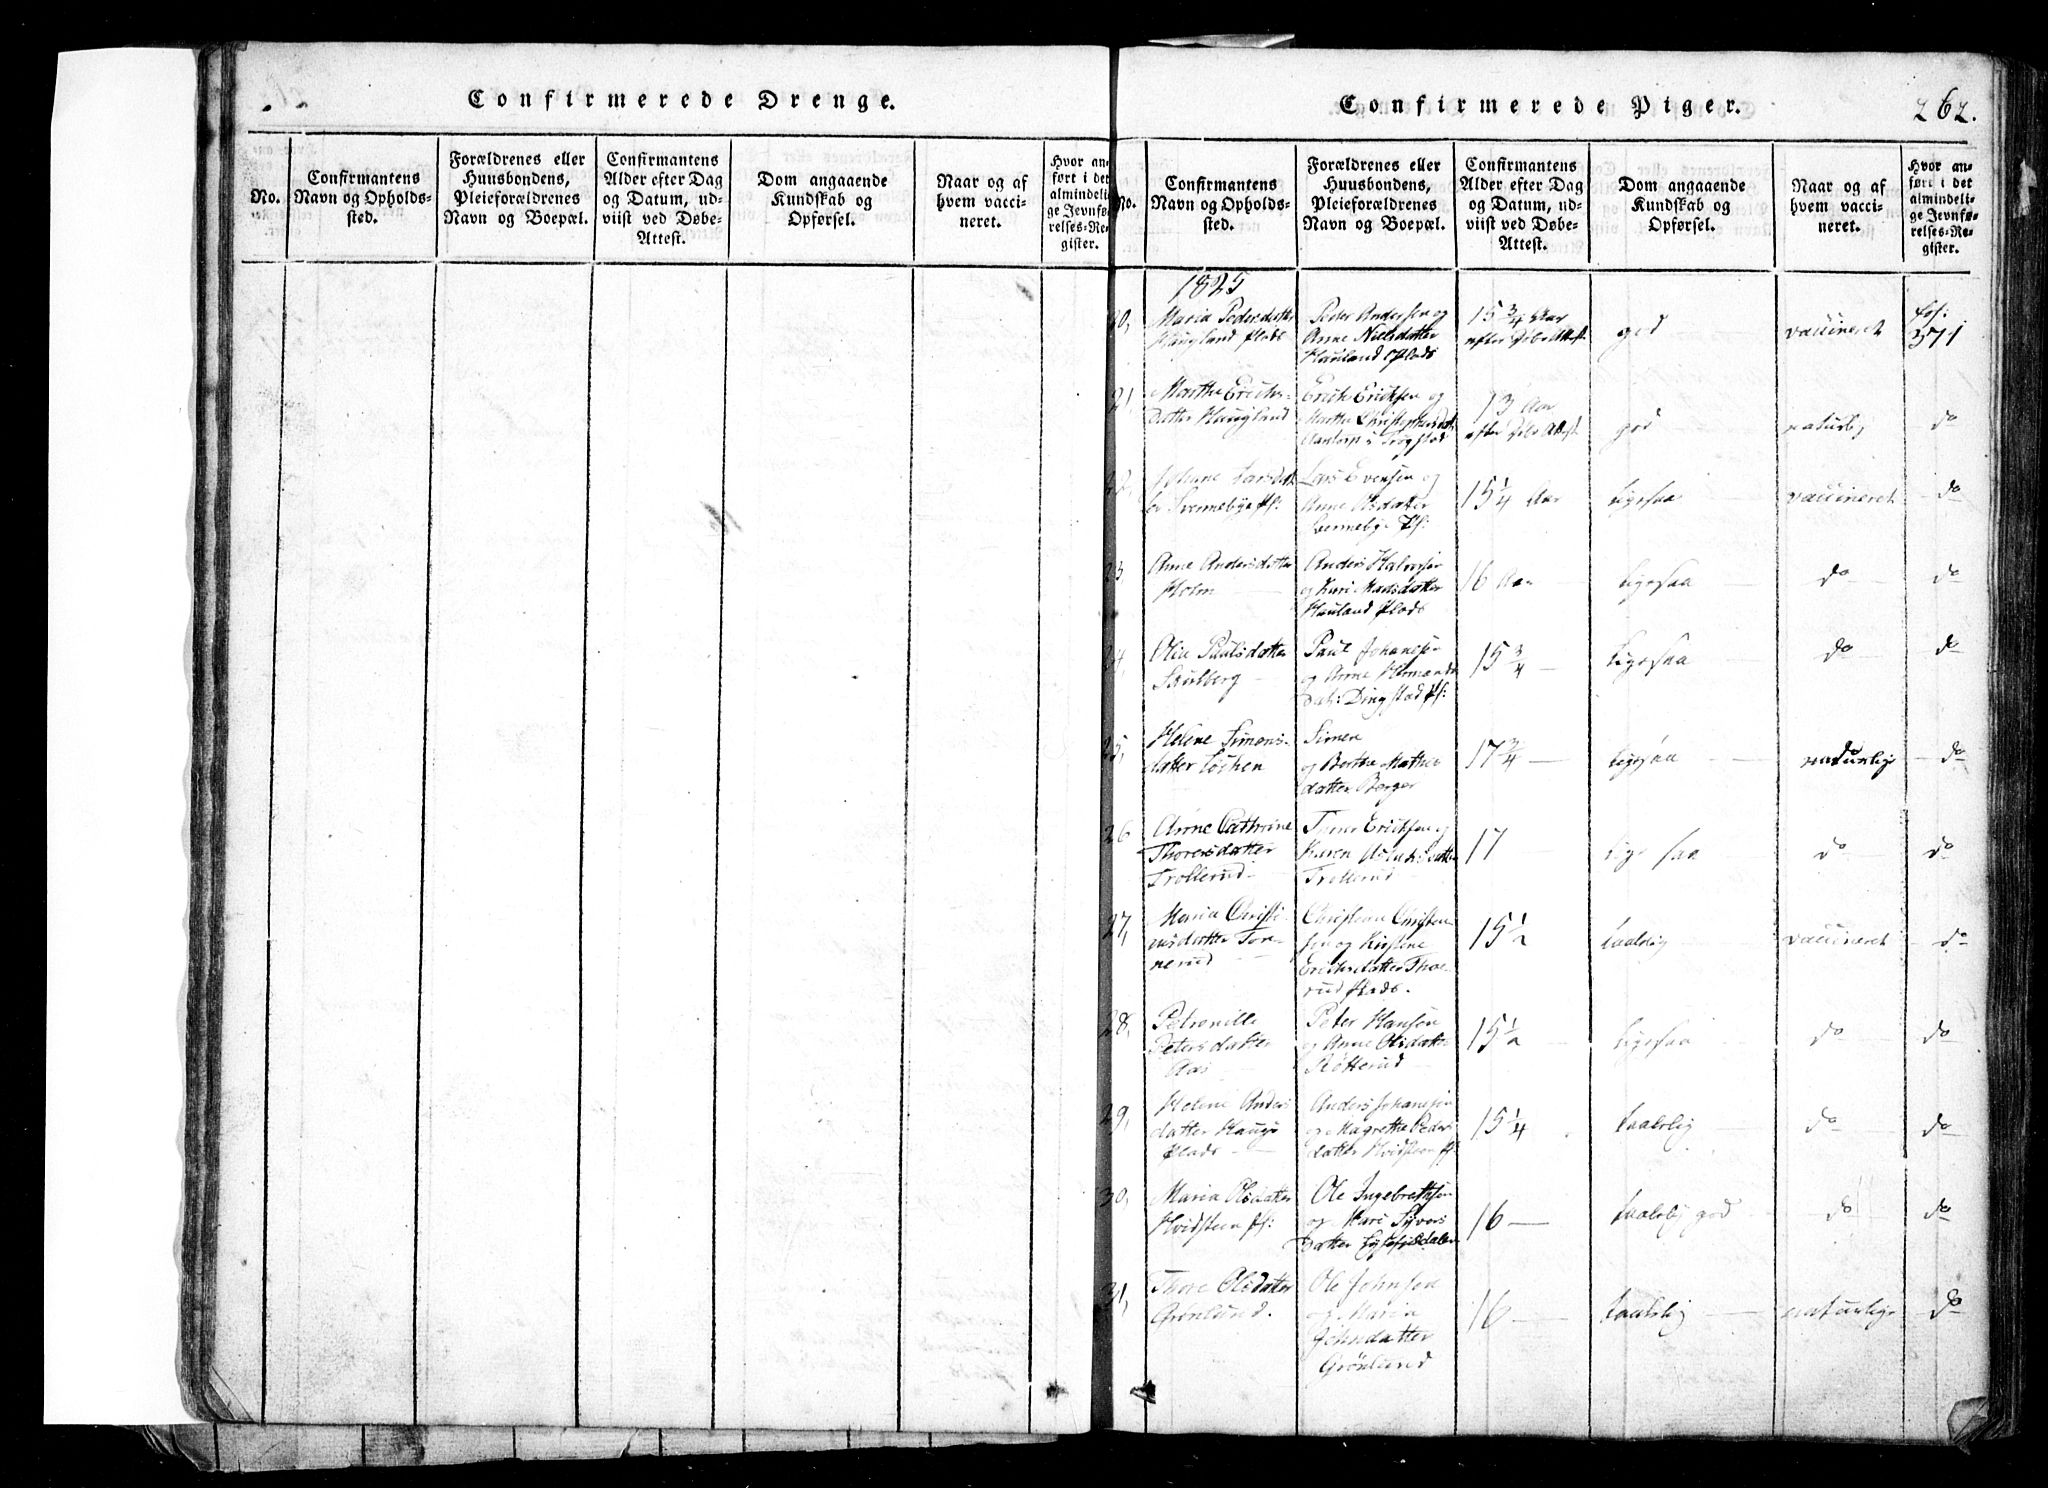 Confirmerede Drenge.
No.
Confirmantens
Navn og Opholds-
sted.
Forældrenes eller
Huusbondens,
Pleieforældrenes
Navn og Boepæl.
Confirmantens
Alder efter Dag
og Datum, ud-
viist ved Døbe-
Attest.
Dom angaaende
Kundskab og
Opførsel.
Naar og af
hvem vacci-
neret.
Hvor an-
ført i det
almindeli-
ge Jevnfø-
relses-Re-
gister.
Confirmerede Piger.
262.
No.
Confirmantens
Navn og Opholds-
sted.
Forældrenes eller
Huusbondens,
Pleieforældrenes
Navn og Boepæl.
Confirmantens
Alder efter Dag
og Datum, ud-
viist ved Døbe-
Attest.
Dom angaaende
Kundskab og
Opførsel.
Naar og af
hvem vacci-
neret.
Hvor an-
ført i det
almindeli-
ge Jevnfø-
relses-Re-
gister.
1825
20,
Maria Pedersdatter
Haugland Plads
Peder Andersen og
Anne Nielsdatter
Hauland Plads
15 3/4 Aar
efter Døbe Attest
god
vaccineret
fol:
371
21,
Marthe Erichs-
datter Haugland
Erich Erichsen og
Marthe Christophersdat
i Trøgstad
13 Aar
efter Døbe Attest
god
naturlig
do
22,
Johanne Larsdat
ter Svennebye Pl:
Lars Evensen og
Anne Olsdatter
Pl:
15 1/4 Aar
ligesaa
vaccineret
do
23,
Anne Andersdatter
Holm
Anders Halvorsen
og Kari Madsdatter
Hauland Plads
16 Aar
ligesaa
do
do
24,
Olia Paulsdatter
Paul Johansen
og Anne Hermands
dat: Dingstad Pl:
15 3/4
ligesaa
do
do
25,
Helene Simons-
datter Løchen
Simen
og Berthe Mathis
datter Berger
17 3/4
ligesaa
do
naturlige
do
26
Anne Cathrine
Thoresdatter
Trollerud
Tore Erichsen og
Karen Aslachsdatter
Trollerud
17
lige saa
do
do
27,
Maria Christi-
ansdatter Tor-
nerud
Christian Christen-
sen og Kirstine
Erichsdatter Thor-
rud Plads.
15 1/2
taalelig
vaccineret
do
28,
Petronille
Petersdatter
Aas
Peter Hansen
og Anne Olsdatter
Røtterud
15 1/2
ligesaa
do
do
29,
Helene Anders
datter Haugs
Plads
Anders Johansen
og Magrethe Peders
datter Hvidsteen Pl:
15 1/4
taalelig
do
do
30,
Maria Olsdatter
Hvidsteen Pl:
Ole Ingebrethsen
og Kari Syvers
datter
16
taalelig god
do
do
31,
Thore Olsdatter
Grønlund.
Ole Johnsen
og Maria
Johnsdatter
Grønlund
16
taalelig
naturlige
do